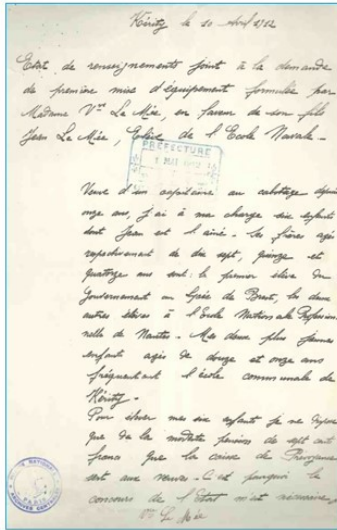 Kérity le 20 avril 1912
Etat de renseignements joint à la demande
de première mise d'équipement formulée par
Madame Vve Le Mée, en faveur de son fils
Jean Le Mée, Elève de l'Ecole Navale -
PREFECTURE
1 MAI 1912
Veuve d'un capitaine au cabotage depuis
onze ans, j'ai à ma charge six enfants
dont Jean est l'aîné - Ses frères agés
respectivement de dix sept, quinze et
quatorze ans sont : le premier élève du
Gouvernement au Lycée de Brest, les deux
autres élèves à l'Ecole Nationale Profession
nelle de Nantes - Mes deux plus jeunes
enfants agés de douze et onze ans
fréquentent l'école communale de
Kérity -
Pour élever mes six enfants je ne dispose
que de la modeste pension de sept cent
francs que la caisse de Prévoyance
sert aux veuves - C'est pourquoi le
concours de l'Etat m'est nécessaire
Vve Le Mée
PARIS